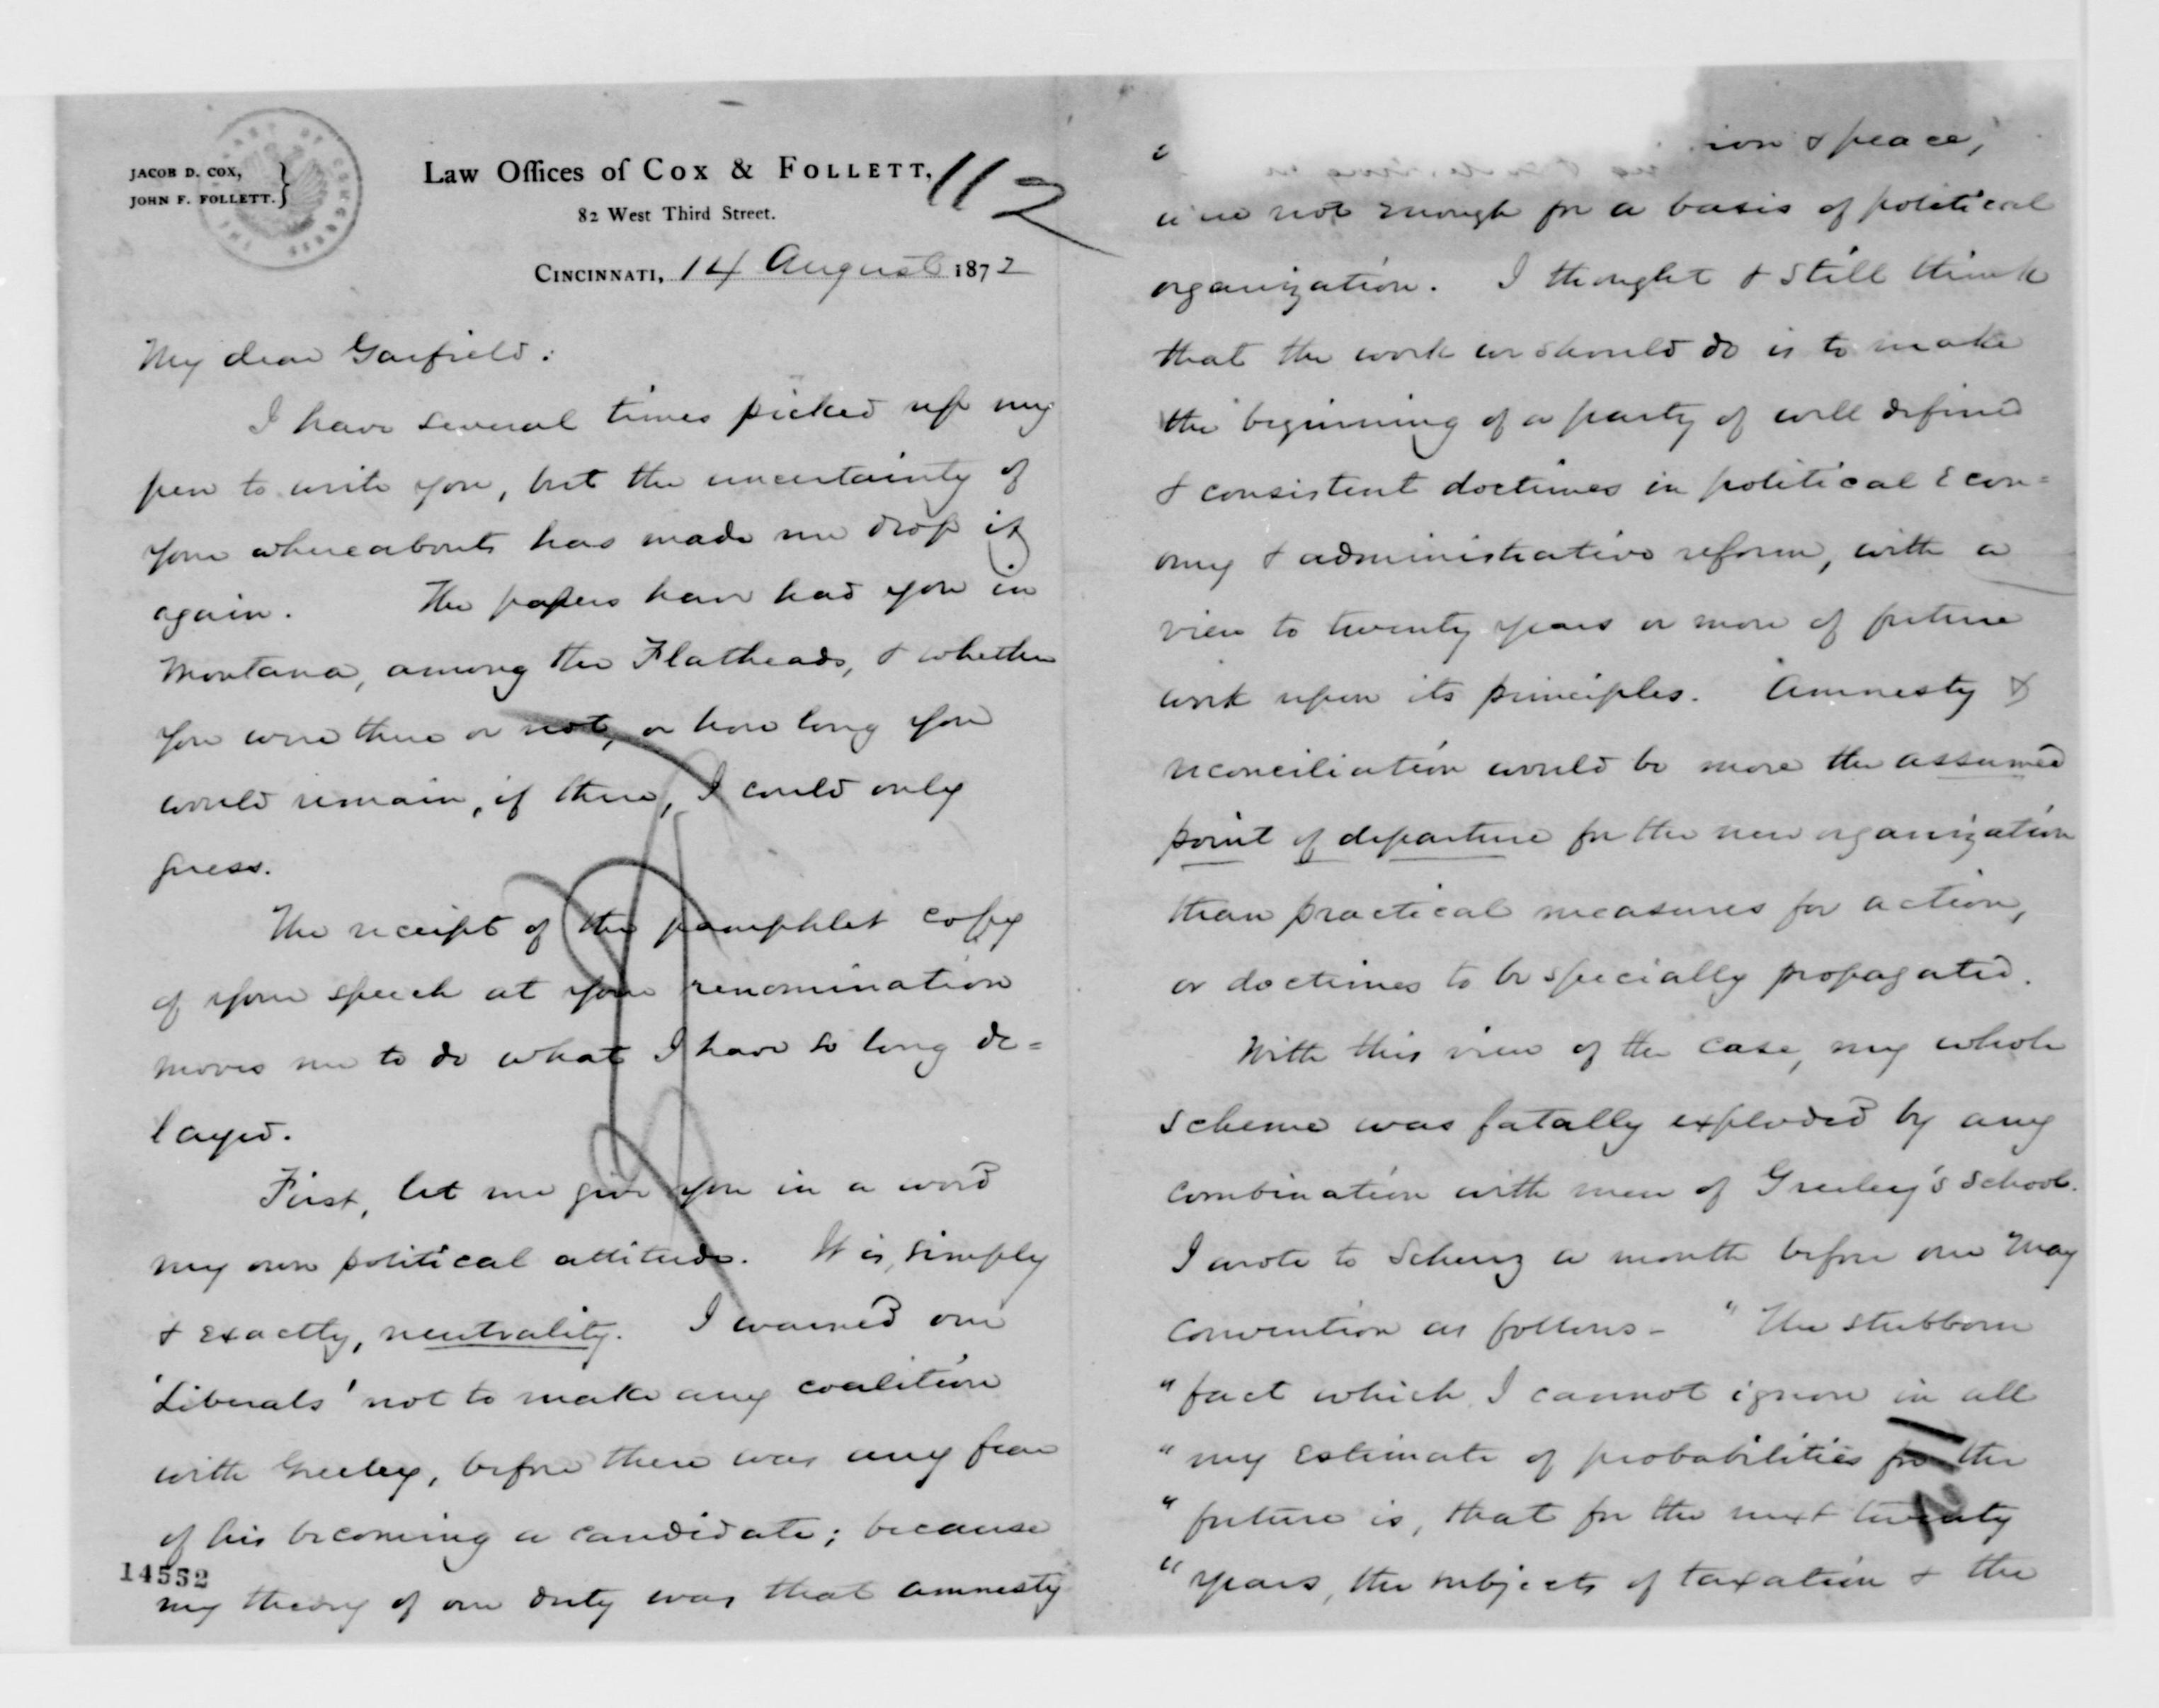 JACOB D. COX,
JOHN F. FOLLETT.
Law Offices of Cox & Follett,
112
82 West Third Street.
Cincinnati, 14 August 1872
My dear Garfield:
I have several times picked up my
pen to write you, but the uncertainty of
your whereabouts has made me drop it
again. The papers have had you in
Montana, among the Flatheads, & whether
you were there or not, or how long you
would remain, if there, I could only
guess.
The receipt of the pamphlet copy
of your speech at your renomination
moves me to do what I have so long de=
layed.
First, let me give you in a word
my own political attitude. It is, simply
& exactly, neutrality. I warned our
'Liberals' not to make any coalition
with Greeley, before there was any fear
of his becoming a candidate; because
my theory of our duty was that amnesty
14552
ion & peace,
were not enough for a basis of political
organization. I thought & still think
that the work we should do is to make
the beginning of a party of well defined
& consistent doctrines in political econ=
omy & administrative reform, with a
view to twenty years or more of future
work upon its principles. Amnesty &
reconciliation would be more the assumed
point of departure for the new organization
than practical measures for action,
or doctrines to be specially propagated.
With this view of the case, my whole
scheme was fatally exploded by any
combination with men of Greeley's school.
I wrote to Schurz a month before our May
convention as follows - "The stubborn
"fact which I cannot ignore in all
"my estimate of probabilities for the
"future is, that for the next twenty
"years, the subjects of taxation & the